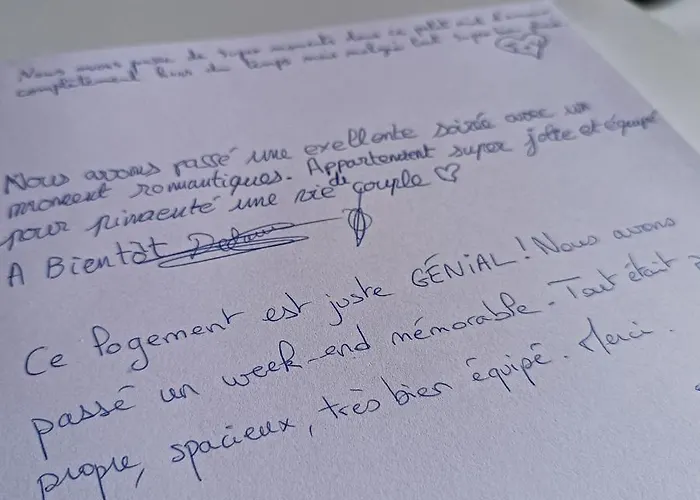 Nous avons passé de super moments dans ce petit
complètement hors du temps mais malgré tout super
Nous avons passé une exellente soirée avec un
moment romantiques. Appartement super jolie et équipé
pour pimenté une vie de couple ♡
A Bientôt
Ce logement est juste GÉNIAL! Nous avons
passé un week-end mémorable. Tout était
propre, spacieux, très bien équipé. Merci.